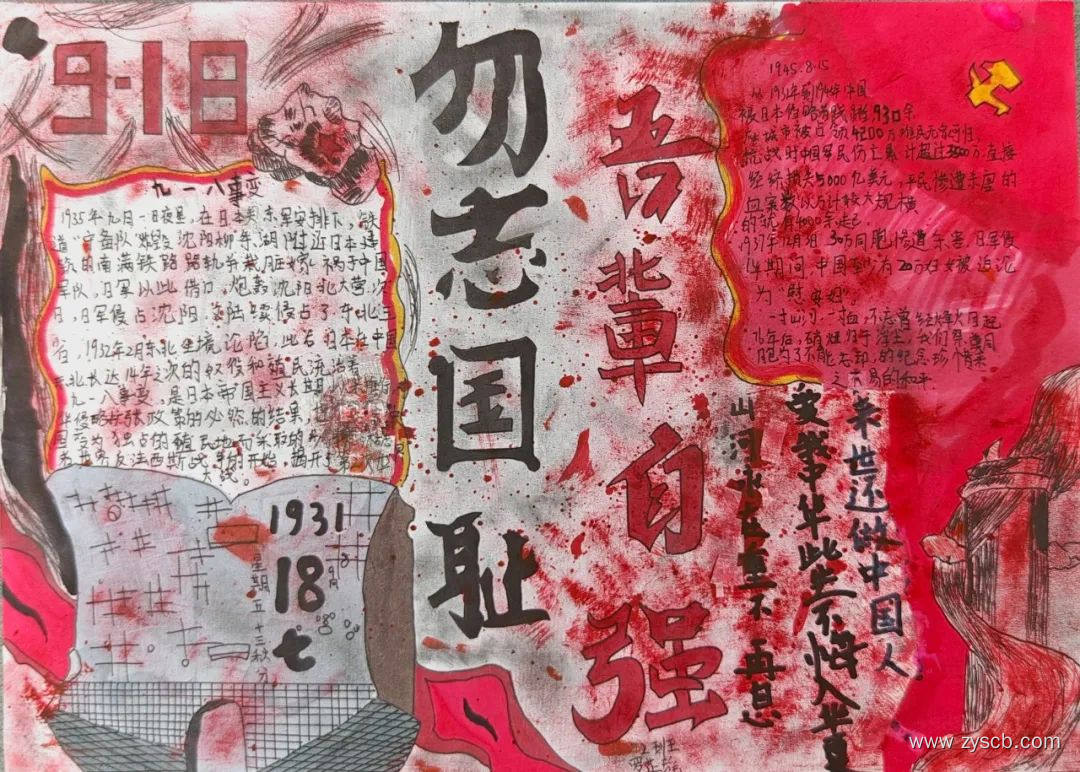 9·18
九一八事变
1935年九月一日夜里,在日本关东军安排下,铁
道"守备队"炸毁沈阳柳条湖附近日本建
筑的南满铁路路轨并栽脏嫁祸于中国
军队,日军以此借口,炮轰沈阳北大营,次
日,日军侵占沈阳,又陆续侵占了东北三
省,1932年2月东北全境沦陷,此后日本在中国
东北长达14年之次的奴役和殖民流治
九一八事变是日本帝国主义长期以来推行
华侵略扩张政策的必然的结果,
国变为独占的殖民地而采取的
世界反法西斯战争的开始,揭开了第二次世
大战。
1931
9月
18
七
星期五
十三秋分
勿志国耻
吾辈自强
1945.8.15
从1931年到1945年中国
被日本侵略者践踏930余
座城市被占领4200万难民无家可归
抗战时中国军民伤亡累计超过3500万直接
经济损失5000亿美元,平民惨遭杀屠的
血案数以万计较大规模
的就有4000余起。
1937年12月3日30万同胞惨遭杀害,日军侵
华期间,中国至少有20万妇女被迫沦
为"慰安妇"
一寸山河一寸血,不忘曾经烽火月起
76年后,硝烟
胞为了不能忘却的纪念珍惜来
之不易的和平
来世还做中国人
爱我中华此生不悔入华夏
山河永在重不再息
www.zyscb.com